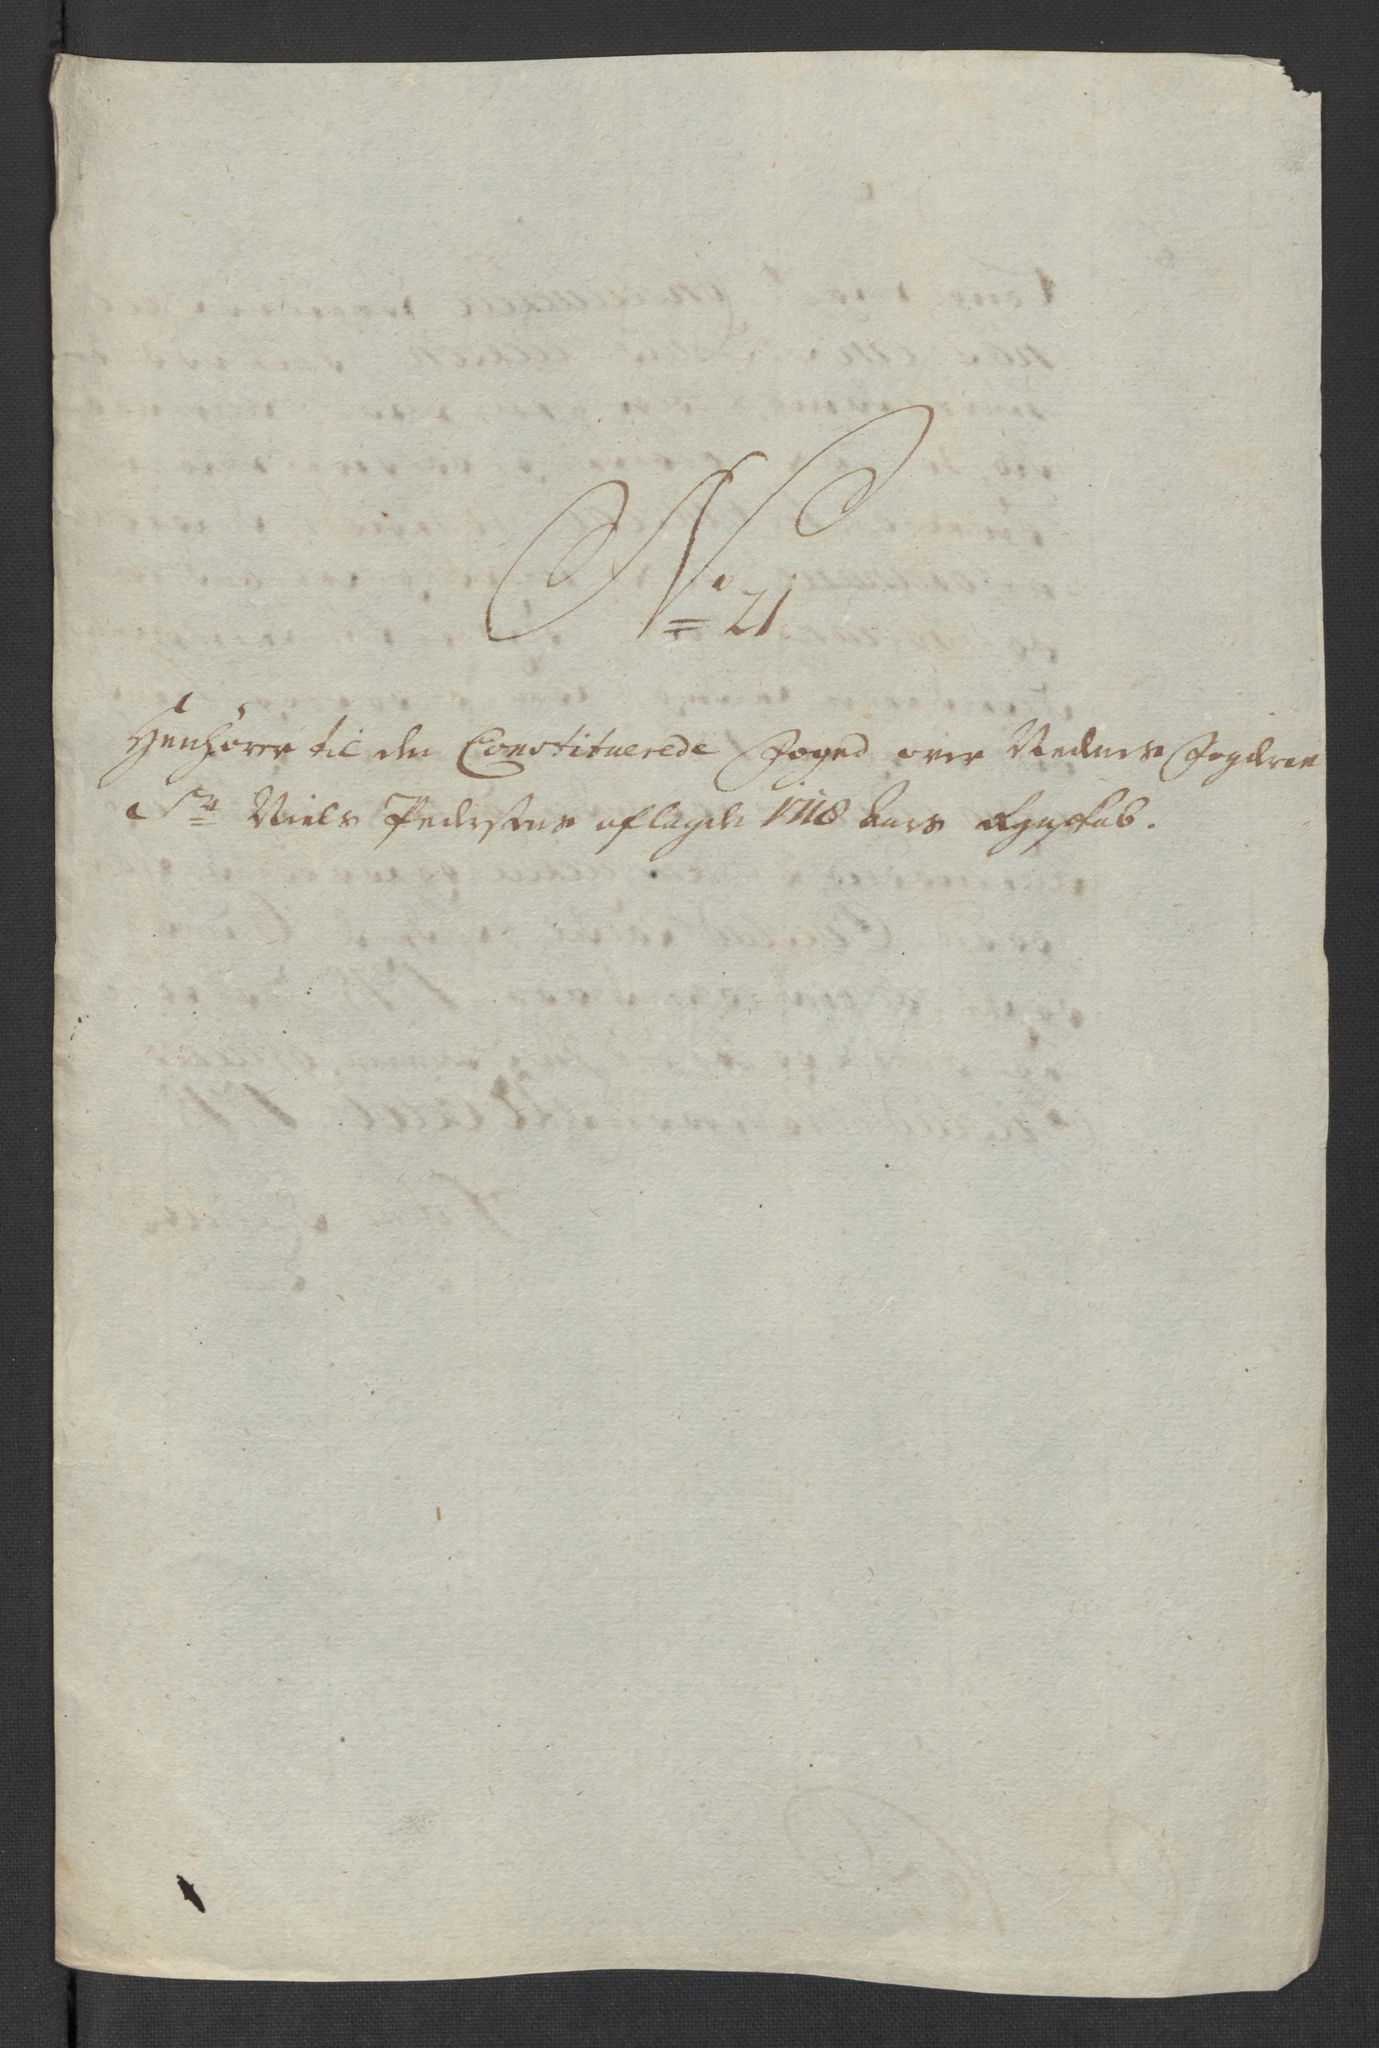 No 21
Henhörer til den Constituerede Foged over Nedenes Fogderie
Sr Niels Pedersens aflagde 1718 Aars Regnskab.